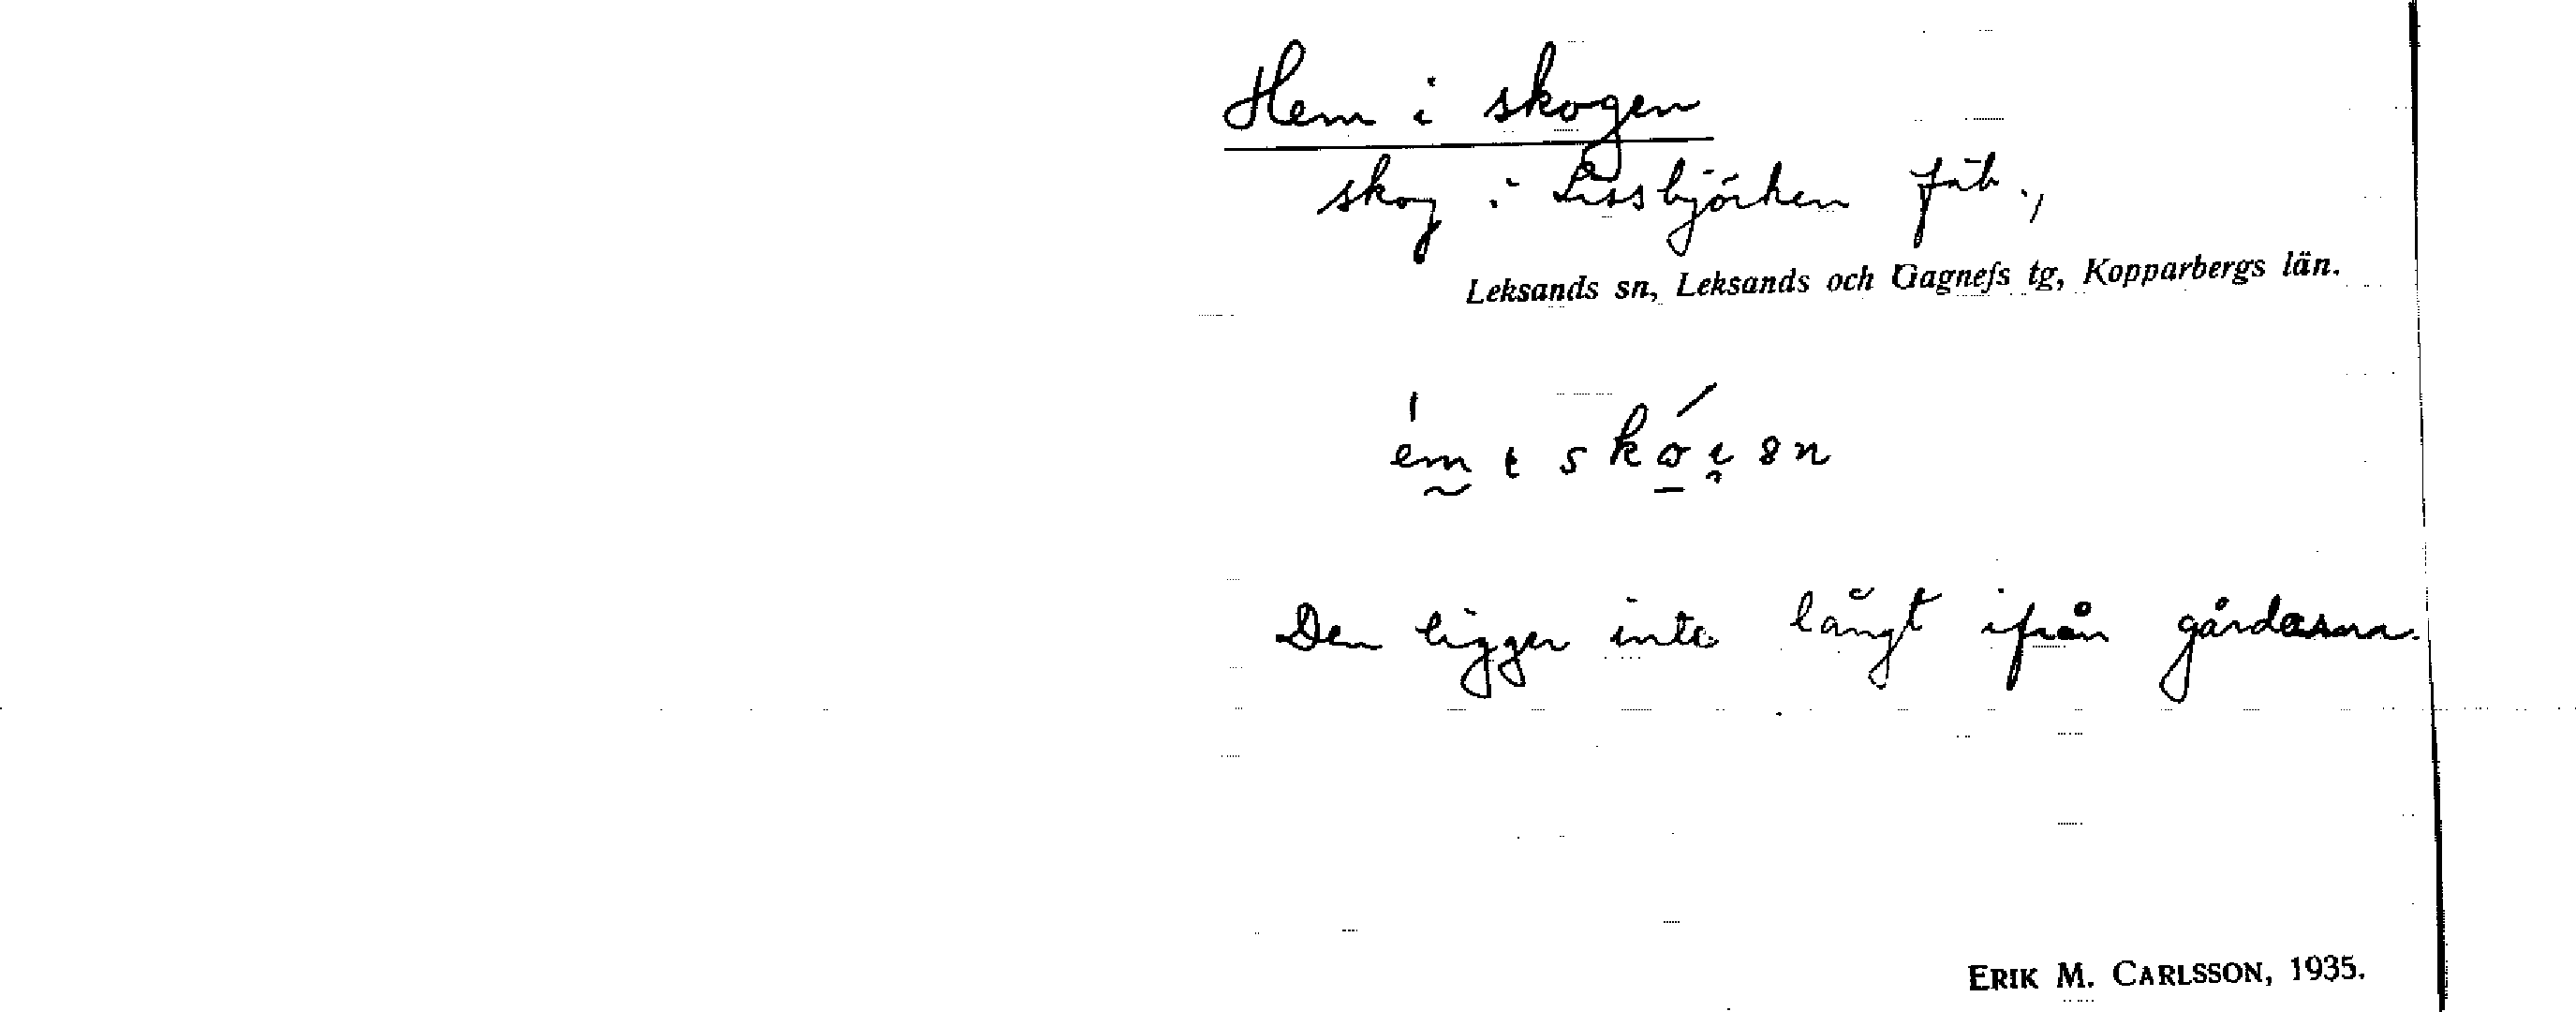 Hem i skogen
skog i Lissbjörken fäb.,
Leksands sn, Leksands och Gagnefs tg, Kopparbergs län.
Den ligger inte långt ifrån gårdarna.
ERIK M. CARLSSON, 1935.